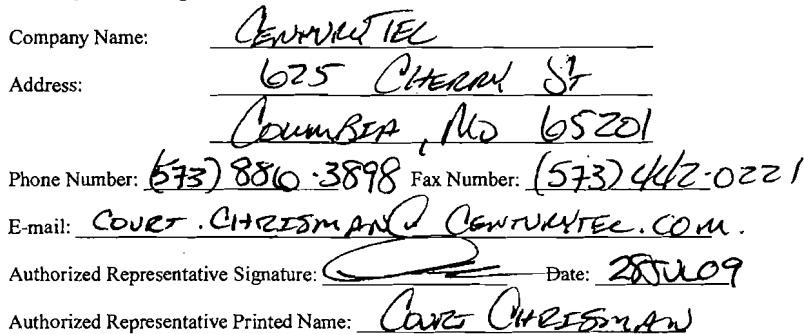 Company Name: CENTURYTEL
Address: 625 CHERRY ST
COLUMBIA, MO 65201
Phone Number: (573) 886-3898 Fax Number: (573) 442-0221
E-mail: COURT.CHRISMAN@CENTURYTEL.COM.
Authorized Representative Signature: Date: 28JUL09
Authorized Representative Printed Name: COURT CHRISMAN